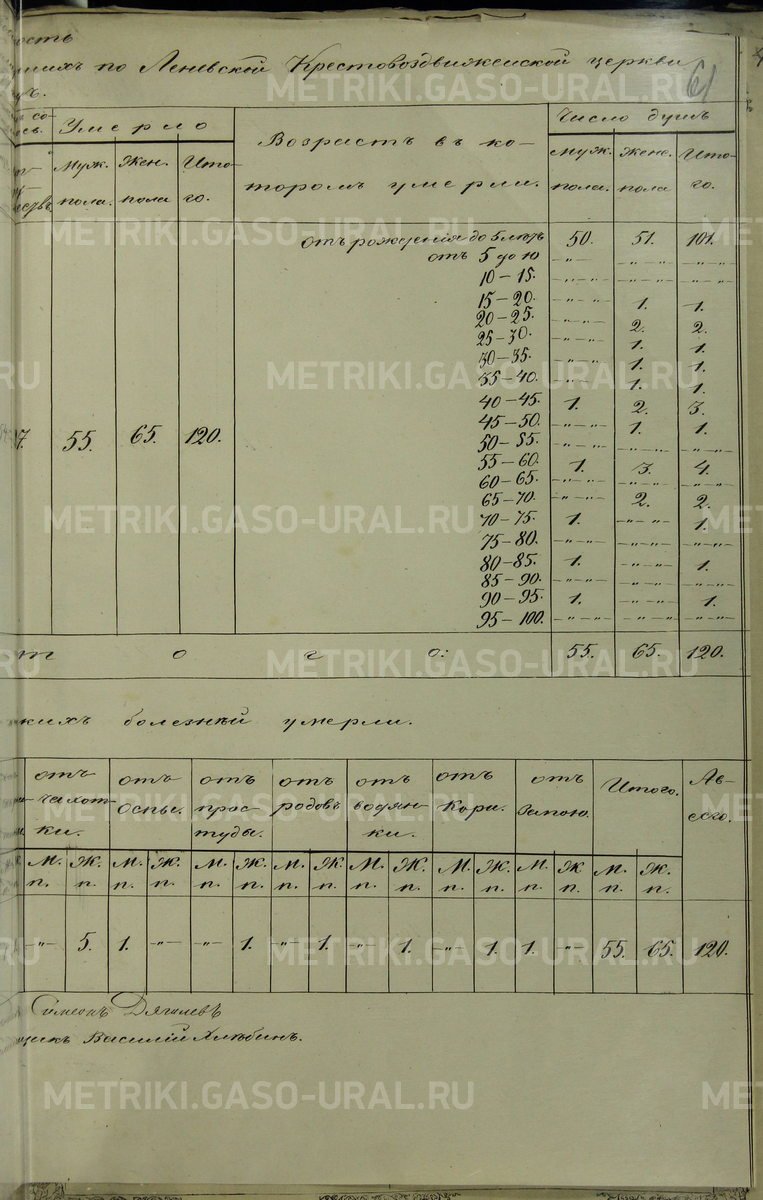 ость
шихъ по Леневской Крестовоздвиженской церкви
61
Умерло
Возрастъ въ ко-
торомъ умерли.
Число душъ
Муж. пола. Жен. пола Ито-го.
Муж. пола. Жен. пола Ито-го.
отъ рождения до 5 лѣтъ 50. 51. 101.
отъ 5 до 10 -"- -"-"- -"-"-
10-15. -"-"- -"-"- -"-"-
15-20. -"-"- 1. 1.
20-25. -"-"- 2. 2.
25-30. -"-"- 1. 1.
30-35. -"-"- 1. 1.
35-40. -"- 1. 1.
40-45. 1. 2. 3.
45-50. -"-"- 1. 1.
7. 55. 65. 120.
50-55. -"-"- -"-"- -"-"-
55-60. 1. 3. 4.
60-65. -"-"- -"-"- -"-"-
65-70. -"-"- 2. 2.
70-75. 1. -"-"- 1.
75-80. -"-"- -"-"- -"-"-
80-85. 1. -"-"- 1.
85-90. -"-"- -"-"- -"-"-
90-95. 1. -"-"- 1.
95-100. -"-"- -"-"- -"-"-
т о г о: 55. 65. 120.
кихъ болезней умерли.
отъ чахот-ки. отъ Оспы. отъ прос-туды. отъ родовъ отъ водян-ки. отъ Кори. отъ Запою. Итого. А в-сего.
М. п. Ж. п. М. п. Ж. п. М. п. Ж. п. М. п. Ж. п. М. п. Ж. п. М. п. Ж. п. М. п. Ж п. М. п. Ж. п.
-"- 5. 1. -"- -"- 1. -"- 1. -"- 1. -"- 1. 1. -"- 55. 65. 120.
Симеонъ Дягилевъ
щикъ Василий Хлѣбинъ.
METRIKI.GASO-URAL.RU